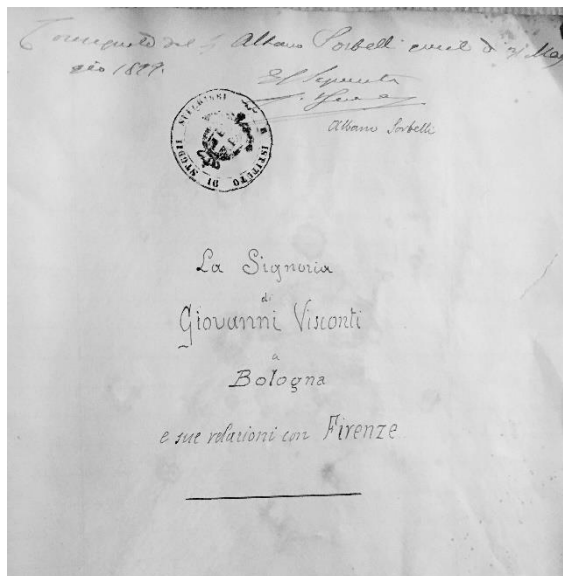 Consegnato dal S. Albano Sorbelli quest' dì 21 Mag
gio 1899.
Il Segretario
Albano Sorbelli
ISTITUTO DI STUDII SUPERIORI
La Signoria
di
Giovanni Visconti
a
Bologna
e sue relazioni con Firenze